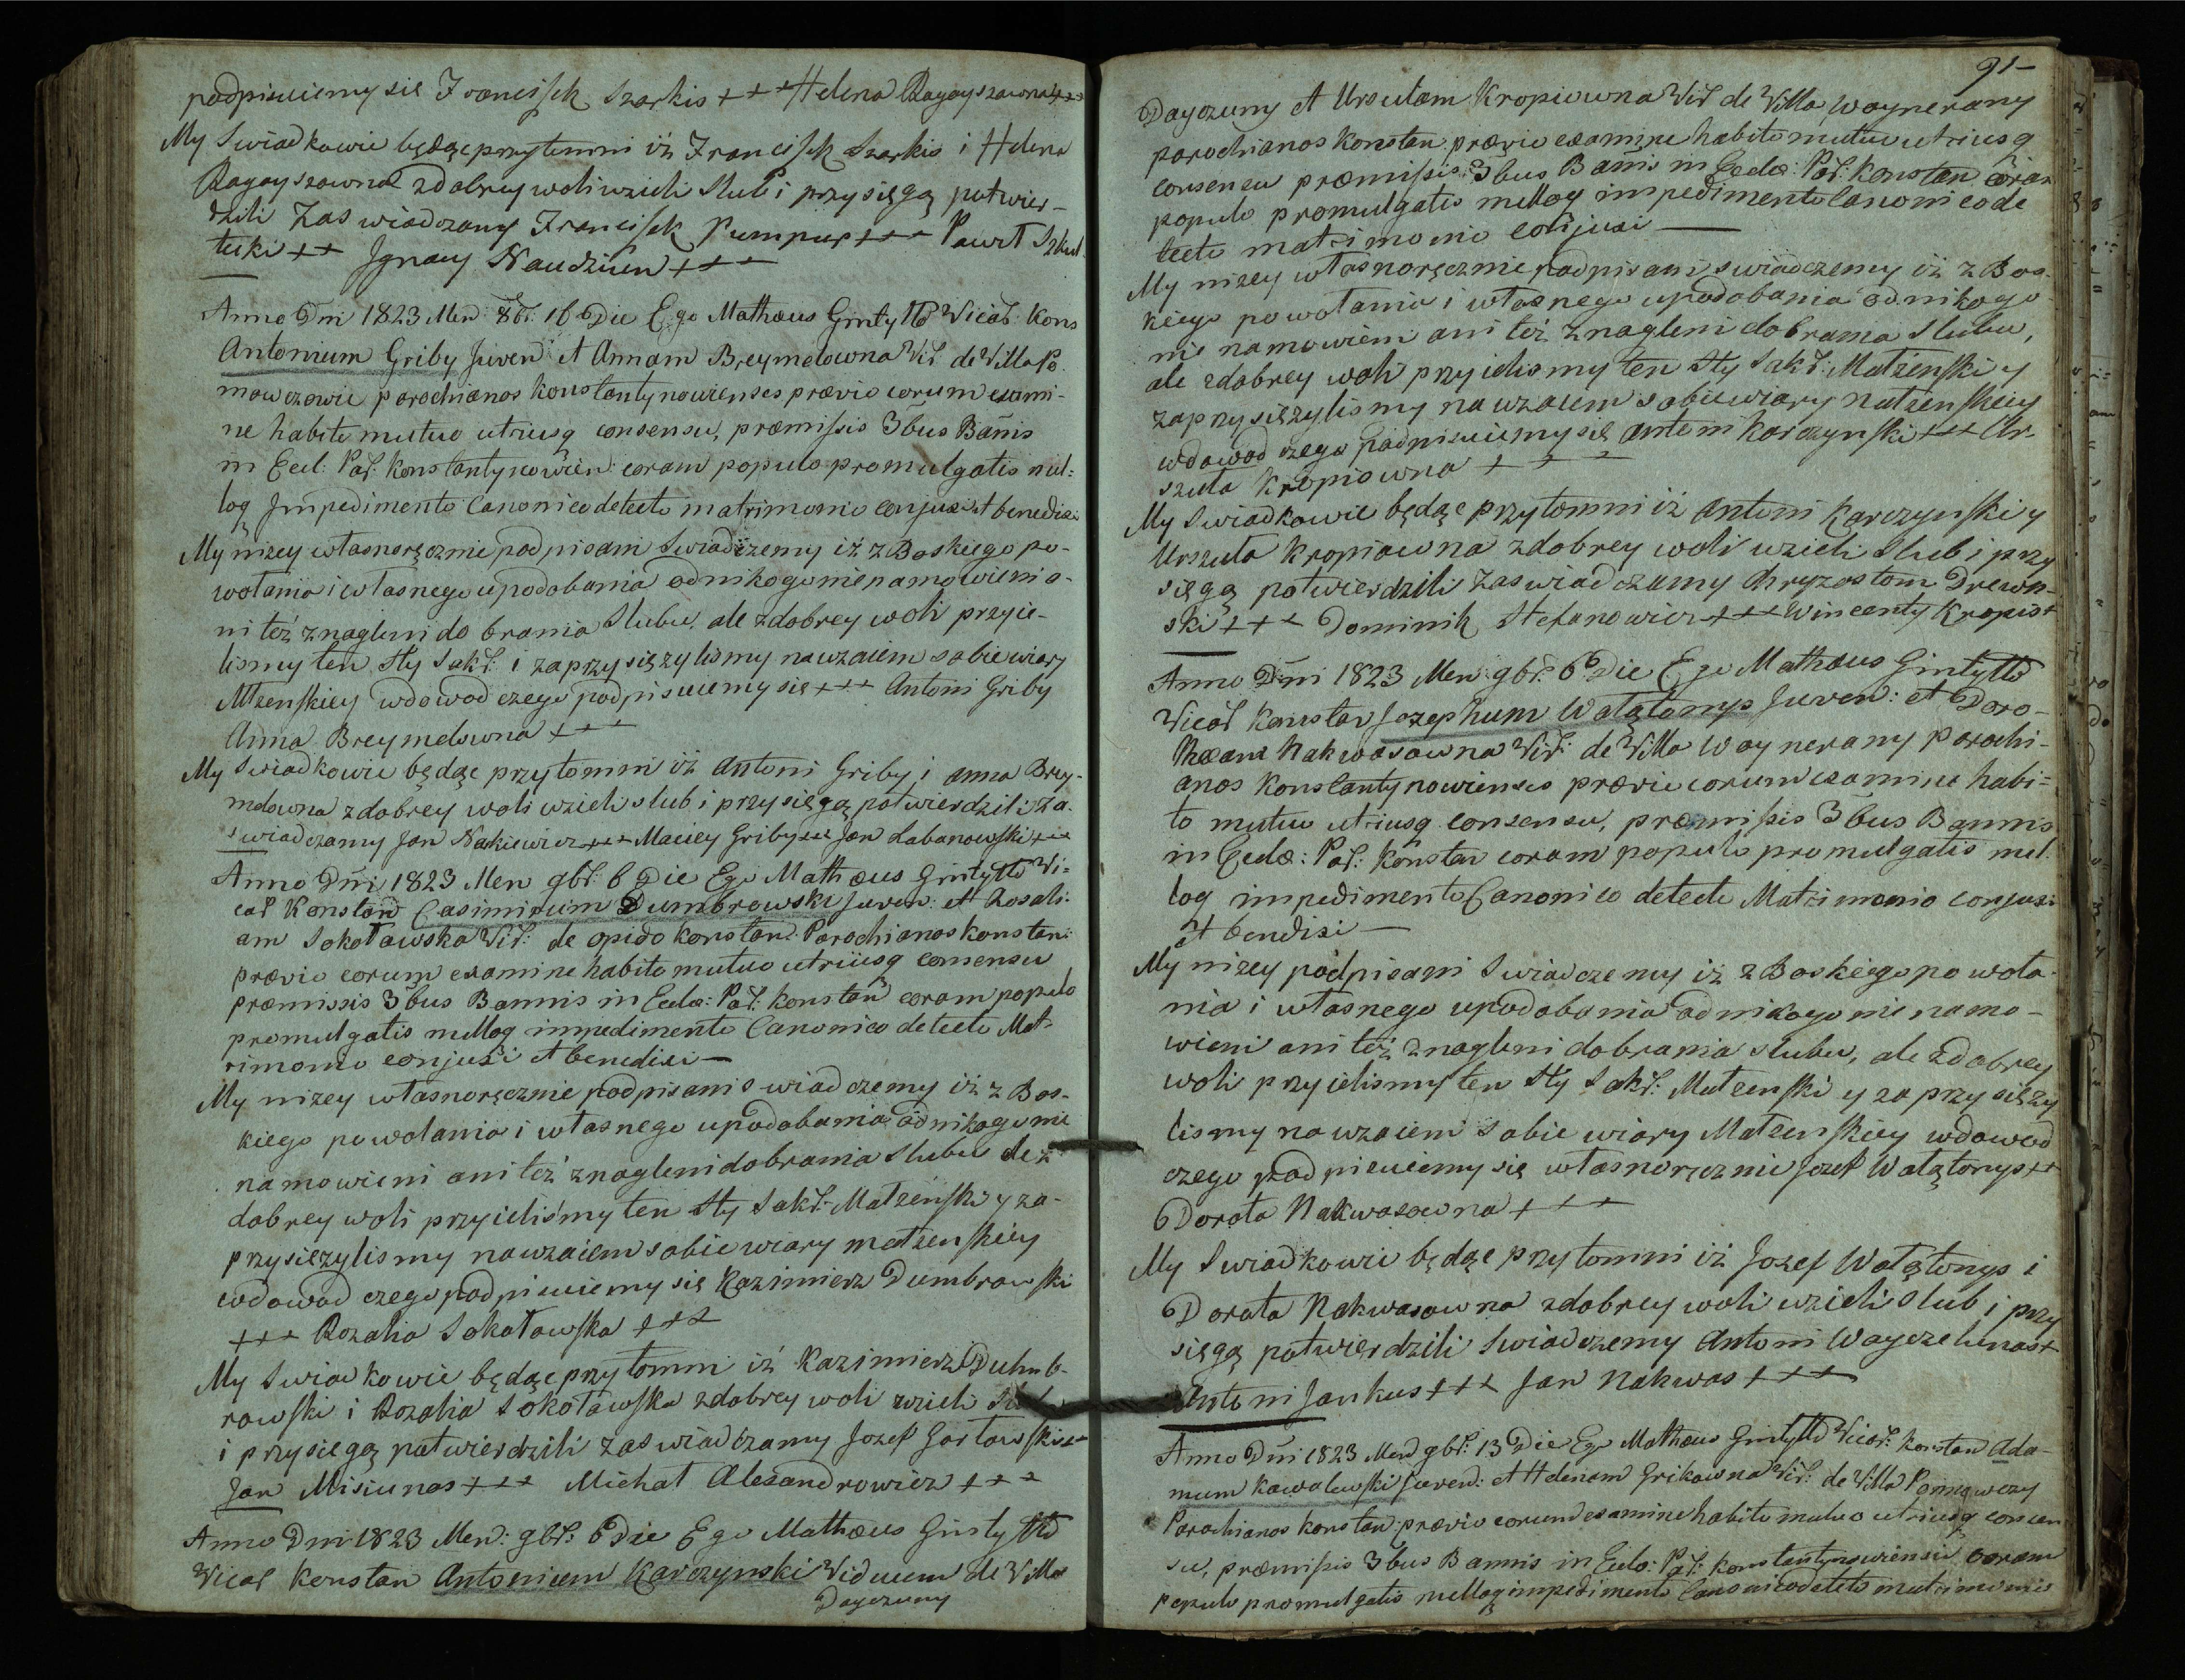 podpisuiemy się Franciszek Szarkis +++ Helena Ragayszowna +++
My Swiadkowie będąc przytomni iż Franciszek Szarkis i Helena
Ragayszowna z dobrey woli wzieli Slub i przysięgą potwier-
dzili Zaswiadczamy Franciszek Pumpur +++ Paweł Szkul
tecki ++ Jgnacy Naudziun +++
Anno Dni 1823 Men: 8br: 16 Die Ego Mathæus Gintyłło Vicar: Kons
Antonium Griby Juven: et Annam Breymelowna Vir: de Villa Po-
mowczowie parochianos Konstantynowienses prævio eorum exami-
ne habito mutuo utriusq consensu, præmissis 3bus Bañis
in Eccl: Par: Konstantynowien: coram populo promulgatis nul-
loq Jmpedimento Canonico detecto matrimonio conjuxi et benedixi
My niżey własnoręcznie podpisani Swiadczemy iż z Boskiego po-
wołania i własnego upodobania od nikogo nie namowieni a-
ni też znagleni do brania Slubu, ale z dobrey woli przyie-
lismy ten Sty Sakr: i zaprzysięzylismy nawzaiem sobie wiary
Młzenskiey wdowod czego podpisuiemy się +++ Antoni Griby
Anna Breymelowna +++
My Swiadkowie będąc przytomni iż Antoni Griby i Anna Brey-
melowna z dobrey woli wzieli slub i przysięgą potwierdzili Za-
swiadczamy Jan Naskiewicz +++ Maciey Griby +++ Jan Labanowski +++
Anno Dñi 1823 Men 9br: 6 Die Ego Mathæus Gintyłło Vi-
car Konstan Casimirum Dumbrowski Juven: et Rosali-
am Sokołowska Vir: de opido Konstan: Parochianos Konstan:
prævio eorum examine habito mutuo utriusq consensu
præmissis 3bus Bannis in Eccla: Par: Konstan coram populo
promulgatis nulloq impedimento Canonico detecto Mat-
rimonio conjuxi et benedixi —
My nizey własnoręcznie podpisani swiadczemy iż z Bos-
kiego powołania i własnego upodobania od nikogo nie
namowieni ani też znagleni do brania Slubu ale z
dobrey woli przyielismy ten Sty Sakr: Matzenski y za-
przysięzylismy nawzaiem sobie wiary matzenskiey
wdowod czego podpisuiemy się Kazimierz Dumbrowski
+++ Rozalia Sokołowska +++
My Swiadkowie będąc przytomni iż Kazimierz Dumb-
rowski i Rozalia Sokołowska z dobrey woli wzieli Slub
i przysięgą potwierdzili zaswiadczamy Jozef Gorłowski ++
Jan Misiunas +++ Michał Alexandrowicz +++
Anno Dni 1823 Men: 9br: 6 Die Ego Mathæus Gintyłło
Vicar Konstan Antonium Karczynski Viduum de Villa
Dayczuny
91-
Dayczuny et Ursulam Kropiowna Vir de Villa Waynerany
parochianos Konstan: prævio examine habito mutuo utriusq
consensu præmissis 3bus Bañis in Eccla: Par: Konstan coram
populo promulgatis nulloq impedimento Canonico de
tecto matrimonio conjuxi —
My nizey własnoręcznie podpisani swiadczemy iż z Bos-
kiego powołania i własnego upodobania od nikogo
nie namowieni ani też znagleni do brania Slubu,
ale z dobrey woli przyielismy ten Sty Sakr: Matzenski y
zaprzysięzylismy nawzaiem sobie wiary matzenskiey
wdowod czego podpisuiemy się Antoni Karczynski +++ Ur-
szula Kropiowna +++
My Swiadkowie będąc przytomni iż Antoni Karczynski y
Urszula Kropiowna z dobrey woli wzieli Slub i przy
sięgą potwierdzili Zaswiadczamy Chryzostom Drewn-
ski +++ Dominik Stefanowicz +++ Wincenty Kropis +
Anno Dñi 1823 Men 9br: 6 Die Ego Mathæus Gintyłło
Vicar Konstan Jozephum Watętonys Juven: et Doro-
theam Nakwasowna Vir: de Villa Waynerany Parochi-
anos Konstantynowienses prævio eorum examine habi-
to mutuo utriusq consensu, præmissis 3bus Bannis
in Eccla: Par: Konstan coram populo promulgatis nul-
loq impedimento Canonico detecto Matrimonio conjuxi
et bendixi —
My nizey podpisani Swiadczemy iż z Boskiego powoła-
nia i własnego upodobania od nikogo nie namo-
wieni ani też znagleni do brania slubu, ale z dobrey
woli przyielismy ten Sty Sakr: Matzenski y zaprzysięzy
lismy nawzaiem sobie wiary Matzenskiey wdowod
czego podpisuiemy się własnoręcznie Jozef Watętonys ++
Dorota Nakwasowna +++
My Swiadkowie będąc przytomni iż Jozef Watętonys i
Dorota Nakwasowna z dobrey woli wzieli Slub i przy
sięgą potwierdzili Swiadczemy Antoni Wayczelunas +
Antoni Jankus +++ Jan Nakwas +++
Anno Dñi 1823 Men 9br: 13 Die Ego Mathæus Gintyłło Vicar: Konstan Ada-
mum Kowalewski Juven: et Helenam Grikowna Vir: de Villa Pomowczy
Parochianos Konstan: prævio eorum examine habito mutuo utriusq consen
su, præmissis 3bus Bannis in Eccla: Par: Konstantynowiensi coram
populo promulgatis nulloq impedimento Canonico detecto matrimonio